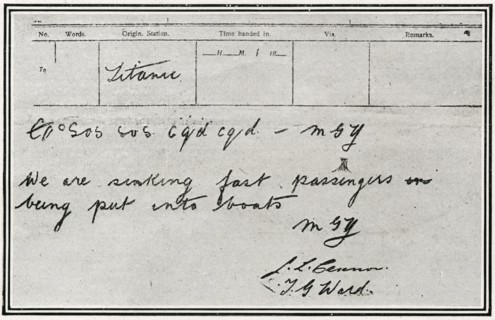 No. Words. Origin. Station. Time handed in. Via. Remarks.
H. M. in.
To Titanic
SOS SOS cqd cqd - MGY
We are sinking fast passengers
being put into boats
MGY